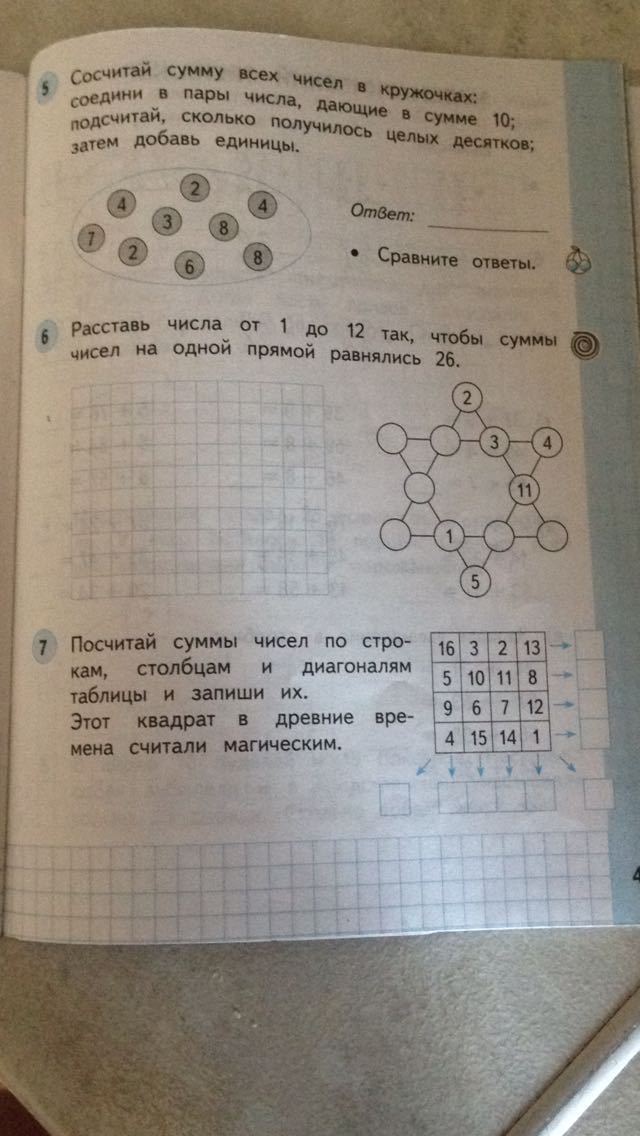 5 Сосчитай сумму всех чисел в кружочках:
соедини в пары числа, дающие в сумме 10;
подсчитай, сколько получилось целых десятков;
затем добавь единицы.
2
4 4
3 8
7 2 6 8
Ответ:
• Сравните ответы.
6 Расставь числа от 1 до 12 так, чтобы суммы
чисел на одной прямой равнялись 26.
2
3 4
11
1
5
7 Посчитай суммы чисел по стро-
кам, столбцам и диагоналям
таблицы и запиши их.
Этот квадрат в древние вре-
мена считали магическим.
16 3 2 13
5 10 11 8
9 6 7 12
4 15 14 1